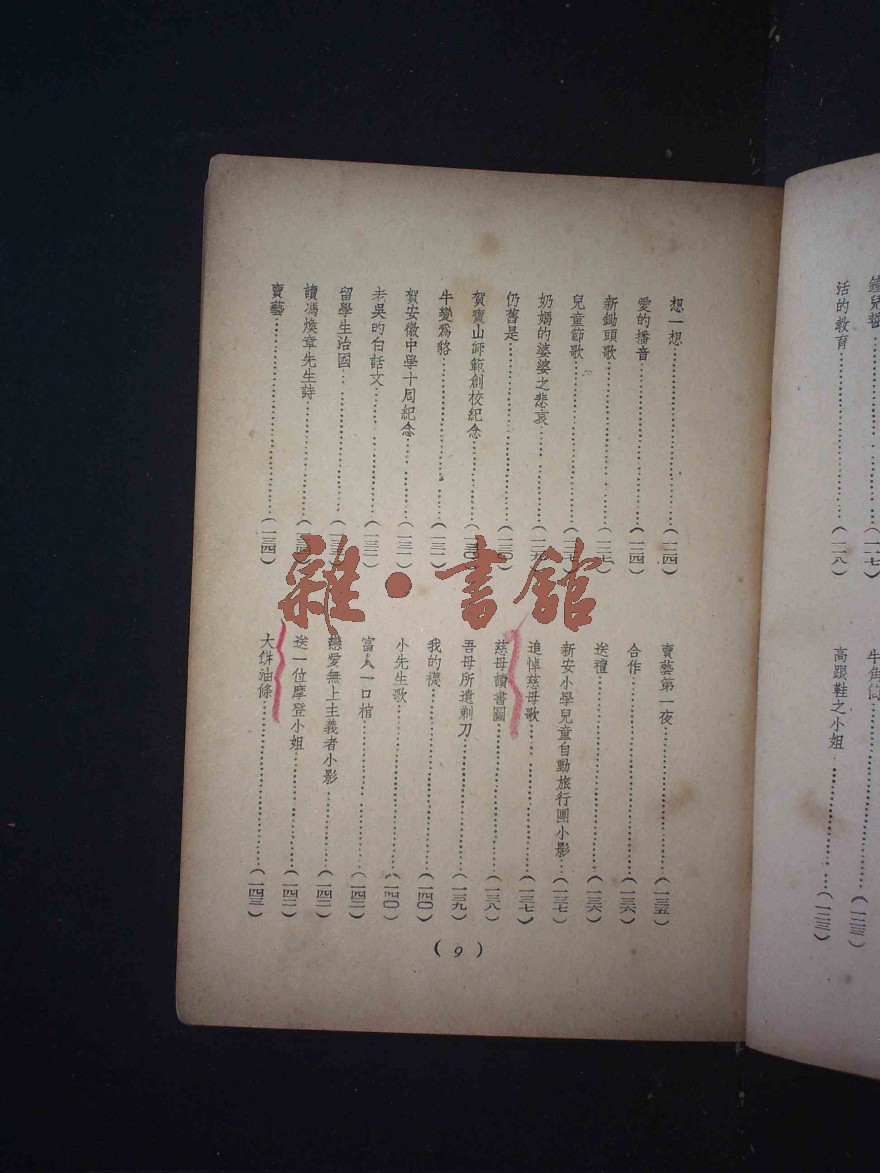 活的教育……(一一八)
高跟鞋之小姐……(一二三)
想一想……(一二四)
愛的播音……(一二四)
新鋤頭歌……(一二七)
兒童節歌……(一二七)
奶媽的婆婆之悲哀……(一二九)
仍舊是……(一三〇)
賀寶山師範創校紀念……(一三〇)
牛變爲貉……(一三一)
賀安徽中學十周紀念……(一三一)
老吳的白話文……(一三二)
留學生治國……
讀馮煥章先生詩……
賣藝……(一三四)
賣藝第一夜……(一三五)
合作……(一三六)
送禮……(一三六)
新安小學兒童自動旅行團小影……(一三七)
追悼慈母歌……(一三七)
慈母讀書圖……(一三八)
吾母所遺剃刀……(一三九)
我的襪……(一四〇)
小先生歌……(一四〇)
富人一口棺……(一四二)
戀愛無上主義者小影……(一四二)
送一位摩登小姐……(一四二)
大餅油條……(一四三)
(9)
雜·書館